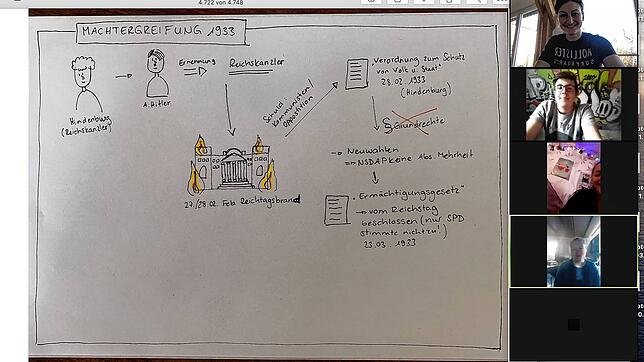 4.722 von 4.748
MACHTERGREIFUNG 1933
Hindenburg
(Reichskanzler)
A.Hitler
Ernennung
Reichskanzler
27./28.02. Feb. Reichtagsbrand
Schuld
Kommunisten/
Opposition
"Verordnung zum Schutz
von Volk u. Staat"
28.02.1933
(Hindenburg)
§ Grundrechte
→ Neuwahlen
⇒ NSDAP keine Abs. Mehrheit
"Ermächtigungsgesetz"
→ vom Reichstag
beschlossen (nur SPD
stimmte nicht zu!)
23.03.1933
HOLLISTER